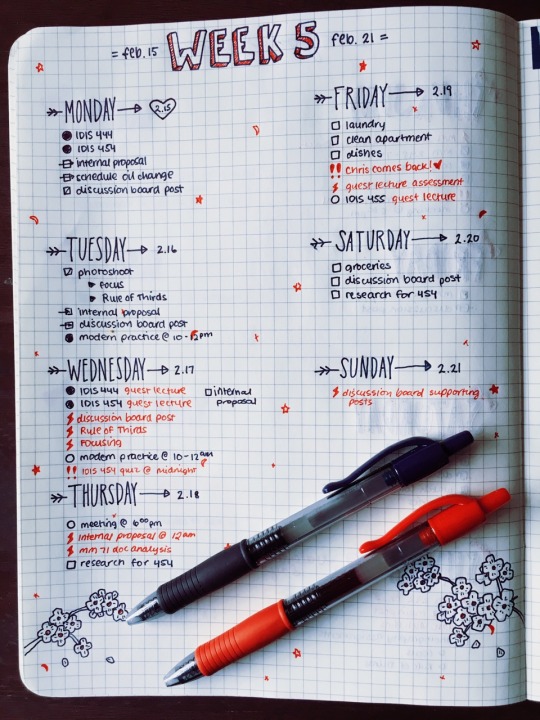 = feb. 15 WEEK 5 feb. 21 =
MONDAY 2.15
IDIS 444
IDIS 454
internal proposal
schedule oil change
discussion board post
TUESDAY 2.16
photoshoot
focus
Rule of Thirds
internal proposal
discussion board post
modern practice @ 10-12pm
WEDNESDAY 2.17
IDIS 444 guest lecture
IDIS 454 guest lecture
internal
proposal
discussion board post
Rule of Thirds
Focusing
modern practice @ 10-12am
!! IDIS 454 quiz @ midnight
THURSDAY 2.18
meeting @ 6:00pm
internal proposal @ 12am
mm 71 doc analysis
research for 454
FRIDAY 2.19
laundry
clean apartment
dishes
!! chris comes back!
guest lecture assessment
IDIS 455 guest lecture
SATURDAY 2.20
groceries
discussion board post
research for 454
SUNDAY 2.21
discussion board supporting
posts